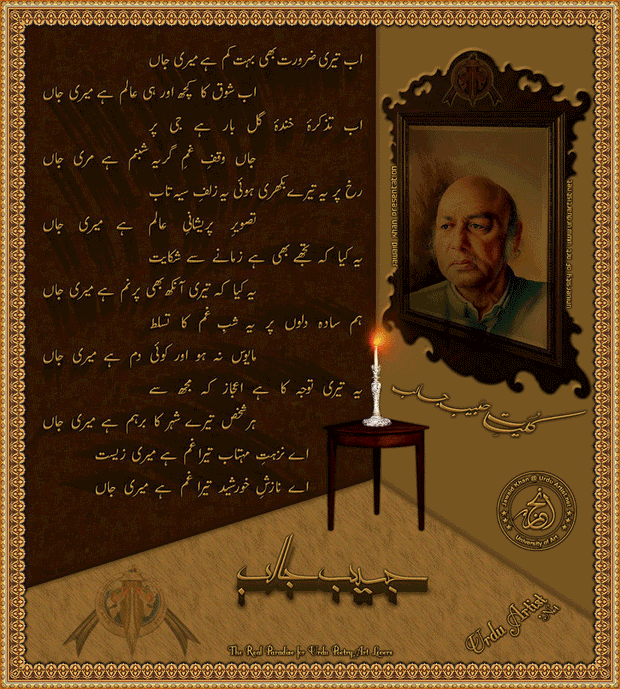 اب تیری ضرورت بھی بہت کم ہے میری جاں
اب شوق کا کچھ اور ہی عالم ہے میری جاں
اب تذکرۂ خندۂ گل بار ہے جی پر
جاں وقفِ غمِ گریہ شبنم ہے مری جاں
رخ پر یہ تیرے بکھری ہوئی یہ زلفِ سیہ تاب
تصویرِ پریشانیِ عالم ہے میری جاں
یہ کیا کہ تجھے بھی ہے زمانے سے شکایت
یہ کیا کہ تیری آنکھ بھی پرنم ہے میری جاں
ہم سادہ دلوں پر یہ شبِ غم کا تسلط
مایوس نہ ہو اور کوئی دم ہے میری جاں
یہ تیری توجہ کا ہے اعجاز کہ مجھ سے
ہر شخص تیرے شہر کا برہم ہے میری جاں
اے نزہتِ مہتاب تیرا غم ہے میری زیست
اے نازشِ خورشید تیرا غم ہے میری جاں
Jawaid Khan presentation
University of Art www.urduartist.net
کلیاتِ حبیب جالب
Jawaid Khan @ Urdu Artist.net
University of Art
حبیب جالب
Urdu Artist
.Net
The Real Paradise for Urdu Poetry, Art Lovers